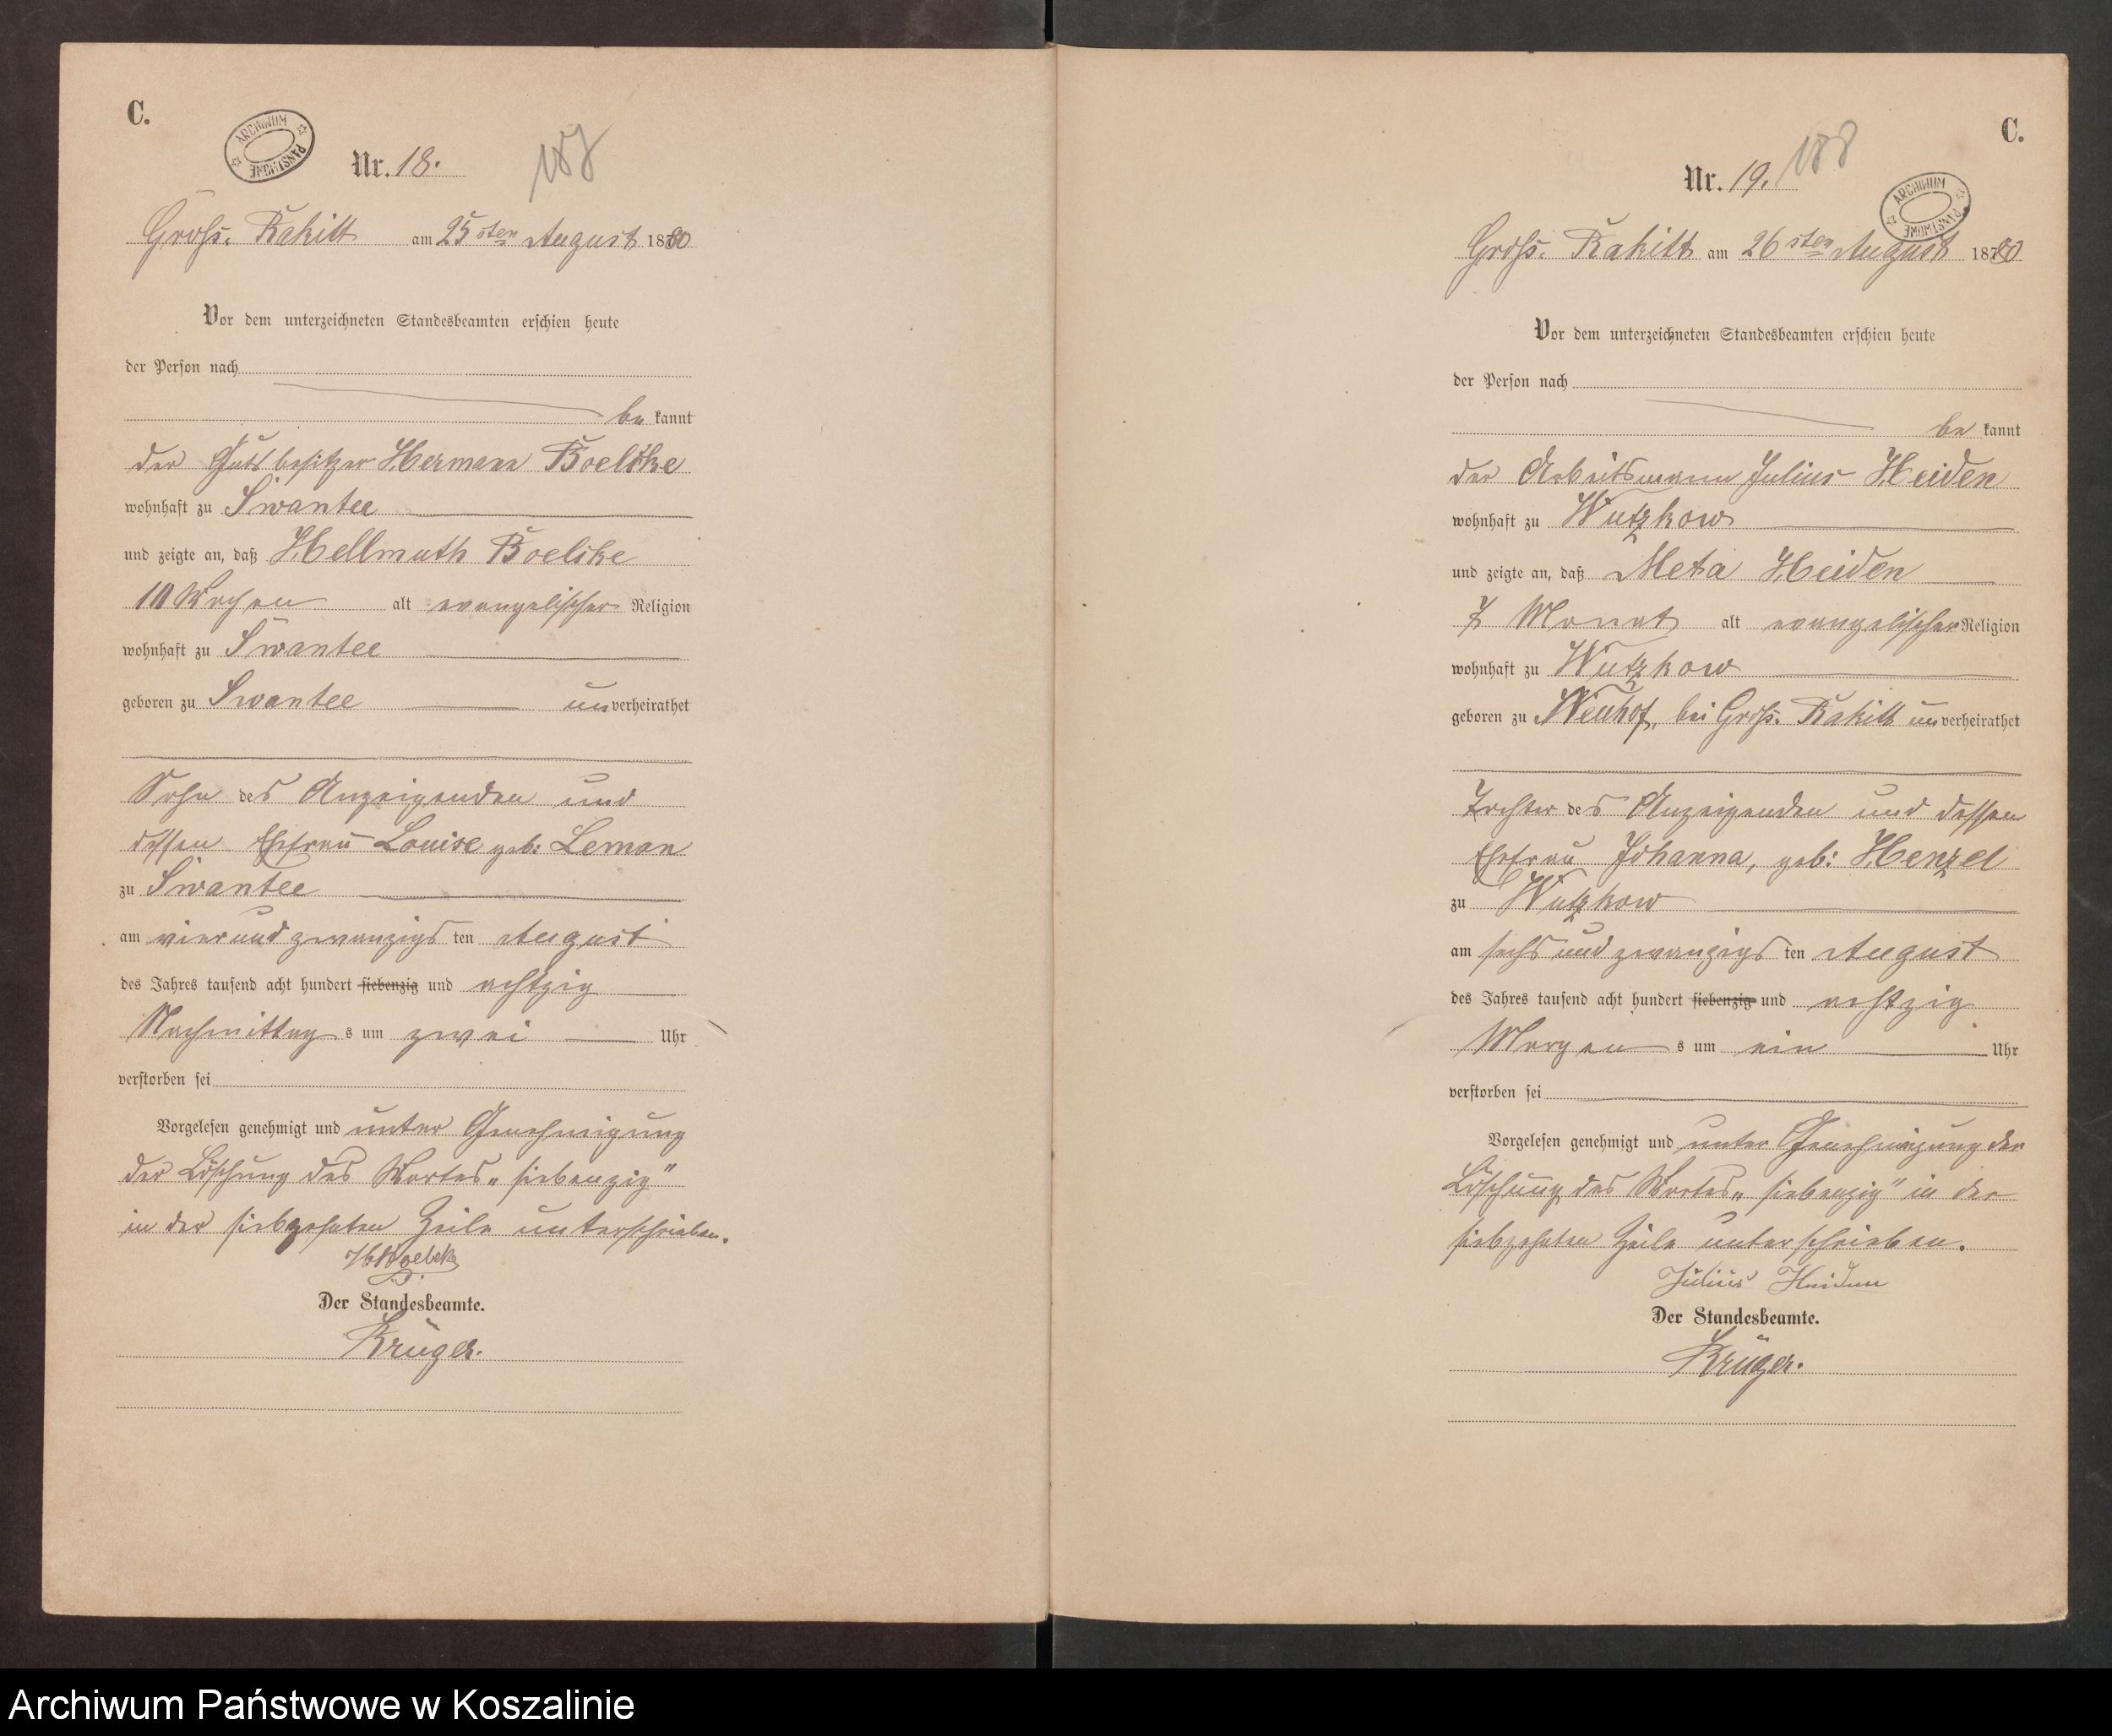 C.
ARCHIWUM PAŃSTWOWE
Nr. 18.
187
Groß. Rakitt am 25sten August 1880
Vor dem unterzeichneten Standesbeamten erschien heute
der Person nach
be kannt
der Gutsbesitzer Hermann Boelcke
wohnhaft zu Swantee
und zeigte an, daß Hellmuth Boelcke
10 Wochen alt evangelischer Religion
wohnhaft zu Swantee
geboren zu Swantee unverheirathet
Sohn des Anzeigenden und
dessen Ehefrau Louise geb: Leman
zu Swantee
am vier und zwanzigs ten August
des Jahres tausend acht hundert siebenzig und achtzig
Nachmittag s um zwei Uhr
verstorben sei
Vorgelesen genehmigt und unter Genehmigung
der Löschung des Wortes „siebenzig"
in der siebzehnten Zeile unterschrieben.
H Boelcke
Der Standesbeamte.
Krüger.
C.
ARCHIWUM PAŃSTWOWE
Nr. 19.
188
Groß. Rakitt am 26sten August 1880
Vor dem unterzeichneten Standesbeamten erschien heute
der Person nach
be kannt
der Arbeitsmann Julius Heiden
wohnhaft zu Wutzkow
und zeigte an, daß Meta Heiden
7 Monat alt evangelischer Religion
wohnhaft zu Wutzkow
geboren zu Neuhof, bei Groß. Rakitt unverheirathet
Tochter des Anzeigenden und dessen
Ehefrau Johanna, geb: Henzel
zu Wutzkow
am sechs und zwanzigs ten August
des Jahres tausend acht hundert siebenzig und achtzig
Morgen s um ein Uhr
verstorben sei
Vorgelesen genehmigt und unter Genehmigung der
Löschung des Wortes „siebenzig" in der
siebzehnten Zeile unterschrieben.
Julius Heiden
Der Standesbeamte.
Krüger.
Archiwum Państwowe w Koszalinie